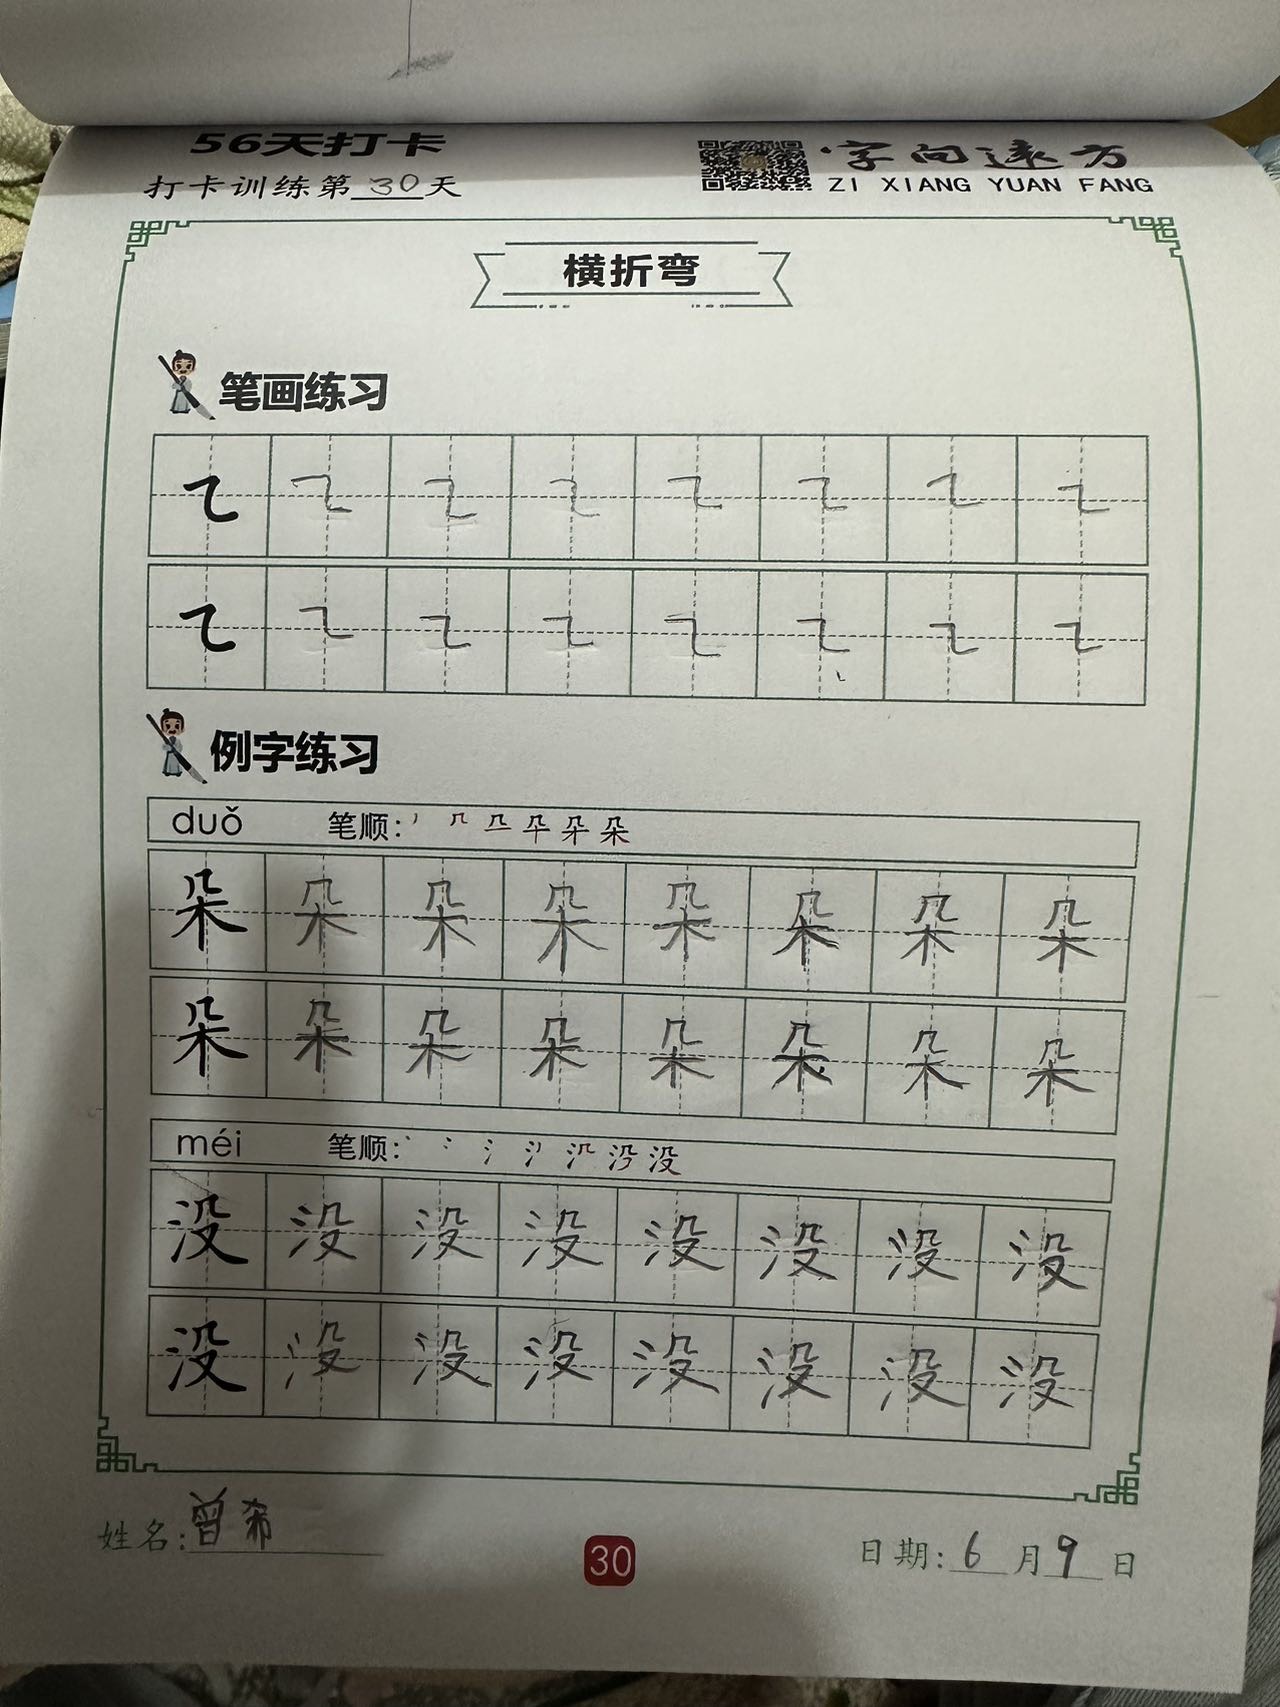 56天打卡
打卡训练第30天
字向远方
ZI XIANG YUAN FANG
横折弯
笔画练习
㇍ ㇍ ㇍ ㇍ ㇍ ㇍ ㇍ ㇍
㇍ ㇍ ㇍ ㇍ ㇍ ㇍ ㇍ ㇍
例字练习
duǒ 笔顺:
朵 朵 朵 朵 朵 朵 朵 朵
朵 朵 朵 朵 朵 朵 朵 朵
méi 笔顺:
没 没 没 没 没 没 没 没
没 没 没 没 没 没 没 没
姓名:曾希
30
日期:6月9日